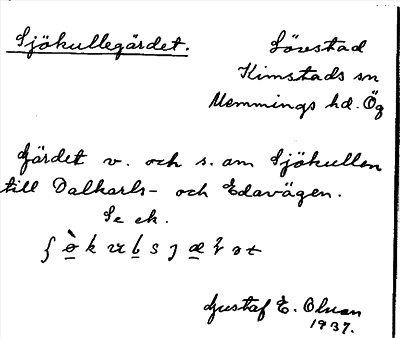 Sjökullegärdet.
Lövestad
Kimstads sn
Memmings hd. Ög
Gärdet v. och s. om Sjökullen
till Dalkarls- och Edavägen.
Se ek.
Gustaf E. Olson
1937.